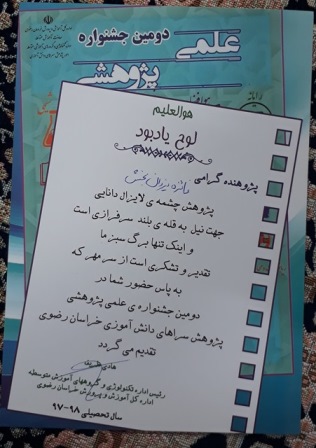 دومین جشنواره
علمی
پژوهشی
هوالعلیم
لوح یادبود
پژوهنده گرامی
پژوهش چشمه ی لایزال دانایی
جهت نیل به قله ی بلند سرفرازی است
و اینک تنها برگ سبز ما
تقدیر و تشکری است از سر مهر که
به پاس حضور شما در
دومین جشنواره ی علمی پژوهشی
پژوهش سراهای دانش آموزی خراسان رضوی
تقدیم می گردد
رئیس اداره تکنولوژی و گروههای آموزشی متوسطه
اداره کل آموزش و پرورش خراسان رضوی
سال تحصیلی ۹۸-۹۷